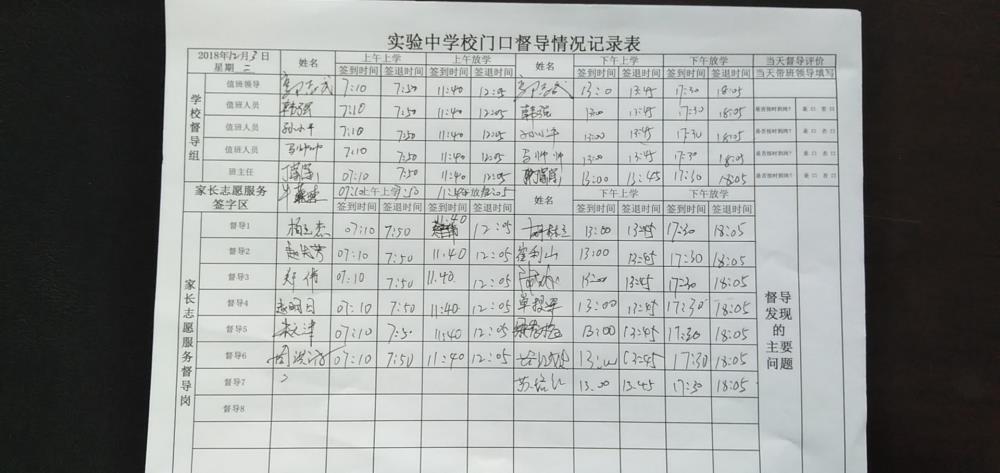 实验中学校门口督导情况记录表
2018年12月3日 星期二 姓名 上午上学 上午放学 姓名 下午上学 下午放学 当天督导评价
签到时间 签退时间 签到时间 签退时间 签到时间 签退时间 签到时间 签退时间 当天带班领导填写
学校督导组
值班领导 7:10 7:50 11:40 12:05 13:45 17:30 18:05
值班人员 韩强 7:10 7:50 11:40 12:05 韩强 13:00 13:45 17:30 18:05 是否按时到岗? 是 口 否 口
值班人员 孙小平 7:10 7:50 11:40 12:05 孙小平 13:00 13:45 17:30 18:05 是否按时到岗? 是 口 否 口
值班人员 马帅帅 7:10 7:50 11:40 12:05 马帅帅 13:00 13:45 17:30 18:05 是否按时到岗? 是 口 否 口
班主任 07:10 7:50 11:40 12:05 13:00 13:45 17:30 18:05 是否按时到岗? 是 口 否 口
家长志愿服务签字区 07:10 上午上学 姓名 下午上学 下午放学
签到时间 签退时间 签到时间 签退时间 签到时间 签退时间 签到时间 签退时间
家长志愿服务督导岗
督导1 杨立杰 07:10 7:50 11:40 12:05 13:00 13:45 17:30 18:05
督导2 07:10 7:50 11:40 12:05 崔利山 13:00 13:45 17:30 18:05
督导3 07:10 7:50 11:40 12:05 13:00 13:45 17:30 18:05
督导4 孟明月 07:10 7:50 11:40 12:05 13:00 13:45 17:30 18:05
督导5 07:10 11:40 12:05 13:00 13:45 17:30 18:05
督导6 07:10 7:50 11:40 12:05 13:45 17:30 18:05
督导7 13:00 13:45 17:30 18:05
督导8
督导发现的主要问题